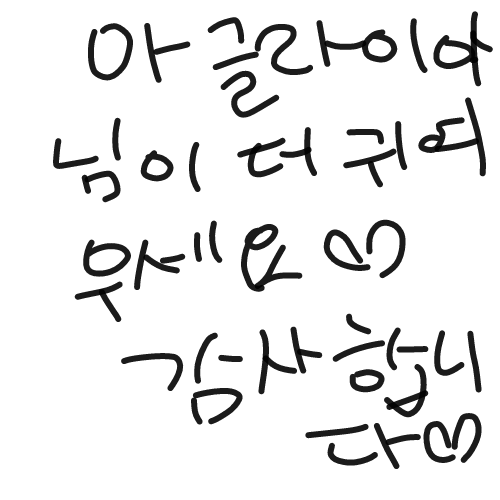 아글라이아
님이 더 귀여
우세요♡
감사합니
다♡